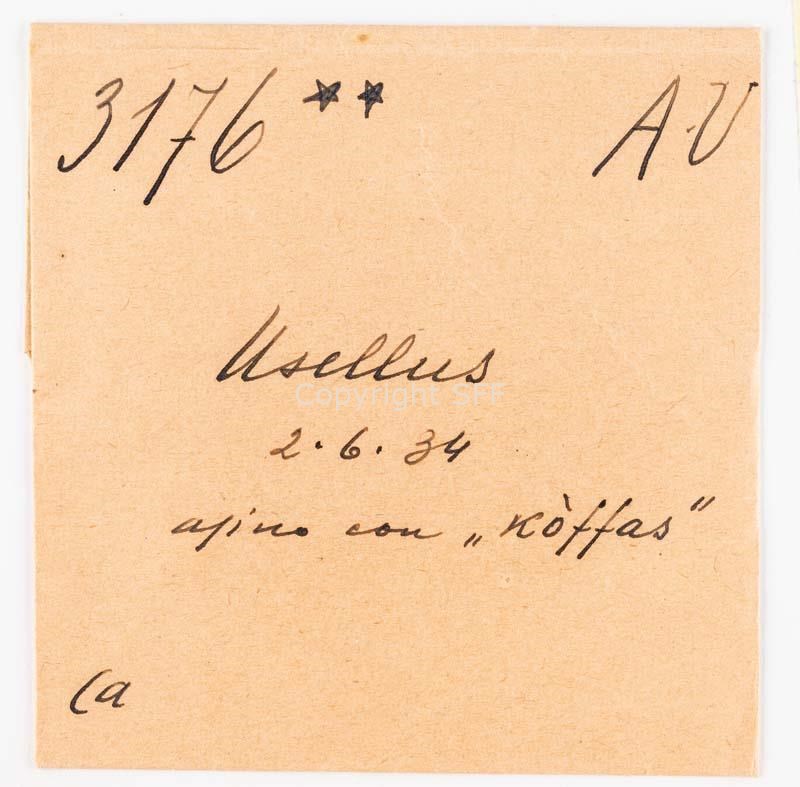 3176 ** A.V
Usellus
Copyright SFF
2.6.34
asino con „kòffas"
Ca